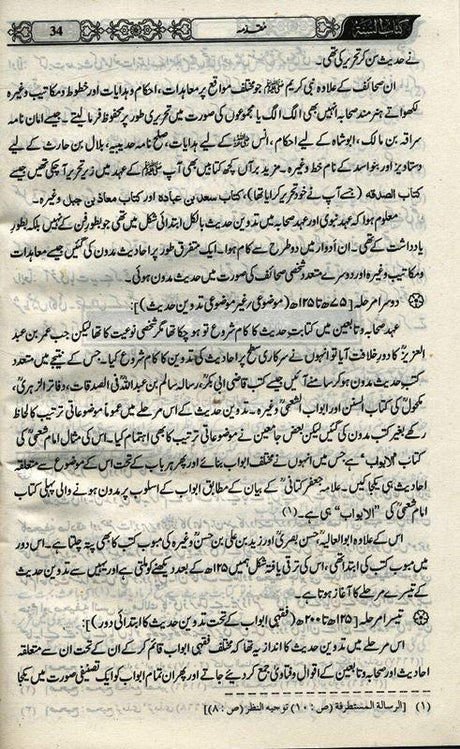 کتاب السنۃ
مقدمہ
34
نے حدیث سن کر تحریر کی تھی۔
ان صحائف کے علاوہ نبی کریم ﷺ جو مختلف مواقع پر معاہدات، احکام و ہدایات اور خطوط و مکاتیب وغیرہ
لکھواتے ہنر مند صحابہ انہیں بھی الگ الگ یا مجموعوں کی صورت میں تحریری طور پر محفوظ فرما لیتے۔ جیسے امان نامہ
سراقہ بن مالک، ابوشاہ کے لیے احکام، انسؓ کے لیے ہدایات، صلح نامہ حدیبیہ، بلال بن حارث کے لیے
دستاویز اور بنو اسد کے نام خط وغیرہ۔ مزید برآں کچھ کتابیں بھی آپ ﷺ کے عہد میں زیر تحریر آ چکی تھیں جیسے
کتاب الصدقہ (جسے آپ نے خود تحریر کرایا تھا)، کتاب سعد بن عبادہ اور کتاب معاذ بن جبل وغیرہ۔
معلوم ہوا کہ عہد نبوی اور عہد صحابہ میں تدوین حدیث بالکل ابتدائی شکل میں تھی جو بطور فن کے نہیں بلکہ بطور
یادداشت کے تھی۔ ان ادوار میں دو طرح سے کام ہوا۔ ایک متفرق طور پر احادیث مدون کی گئیں جیسے معاہدات
و مکاتیب وغیرہ اور دوسرے متعدد شخصی صحائف کی صورت میں حدیث مدون ہوئی۔
دوسرا مرحلہ [۷۵ھ تا ۱۲۵ھ (موضوعی وغیر موضوعی تدوین حدیث)]:
عہد صحابہ و تابعین میں کتابت حدیث کا کام شروع تو ہو چکا تھا مگر شخصی نوعیت کا تھا لیکن جب عمر بن عبد
العزیزؒ کا دور خلافت آیا تو انہوں نے سرکاری سطح پر احادیث کی تدوین کا کام شروع کیا۔ جس کے نتیجے میں متعدد
کتب حدیث مدون ہو کر سامنے آئیں جیسے کتب قاضی ابی بکرؒ، رسالہ سالم بن عبداللہؒ فی الصدقات، دفاتر الزہریؒ،
مکحولؒ کی کتاب السنن اور ابواب الشعبیؒ وغیرہ۔ تدوین حدیث کے اس مرحلے میں عموماً موضوعاتی ترتیب کا لحاظ
رکھے بغیر کتب مدون کی گئیں لیکن بعض جامعین نے موضوعاتی ترتیب کا بھی اہتمام کیا۔ اس کی مثال امام شعبیؒ کی
کتاب ’الابواب‘ ہے جس میں انہوں نے مختلف ابواب بنائے اور پھر ہر باب کے تحت اس کے موضوع سے متعلقہ
احادیث ہی یکجا کیں۔ علامہ جعفر کتانیؒ کے بیان کے مطابق ابواب کے اسلوب پر مدون ہونے والی پہلی کتاب
امام شعبیؒ کی ”الابواب“ ہی ہے۔ (۱)
اس کے علاوہ ابو العالیہؒ، حسن بصریؒ اور زید بن علی بن حسنؒ وغیرہ کی مبوب کتب کا بھی پتہ چلتا ہے۔ اس دور
میں مبوب کتب کی ابتدا تھی، اس کی ترقی یافتہ شکل ہمیں ۱۲۵ھ کے بعد دیکھنے کو ملتی ہے اور یہیں سے تدوین حدیث
کے تیسرے مرحلے کا آغاز ہوتا ہے۔
تیسرا مرحلہ [۱۲۵ھ تا ۲۰۰ھ (فقہی ابواب کے تحت تدوین حدیث کا ابتدائی دور)]:
اس مرحلے میں تدوین حدیث کا انداز یہ تھا کہ مختلف فقہی ابواب قائم کر کے ان کے تحت ان سے متعلقہ
احادیث اور صحابہ و تابعین کے اقوال و فتاویٰ جمع کر دیئے جاتے اور پھر ان تمام ابواب کو ایک تصنیفی صورت میں یکجا
(۱) [الرسالة المستطرفة (ص : ۱۰) توجیہ النظر (ص : ۸)]